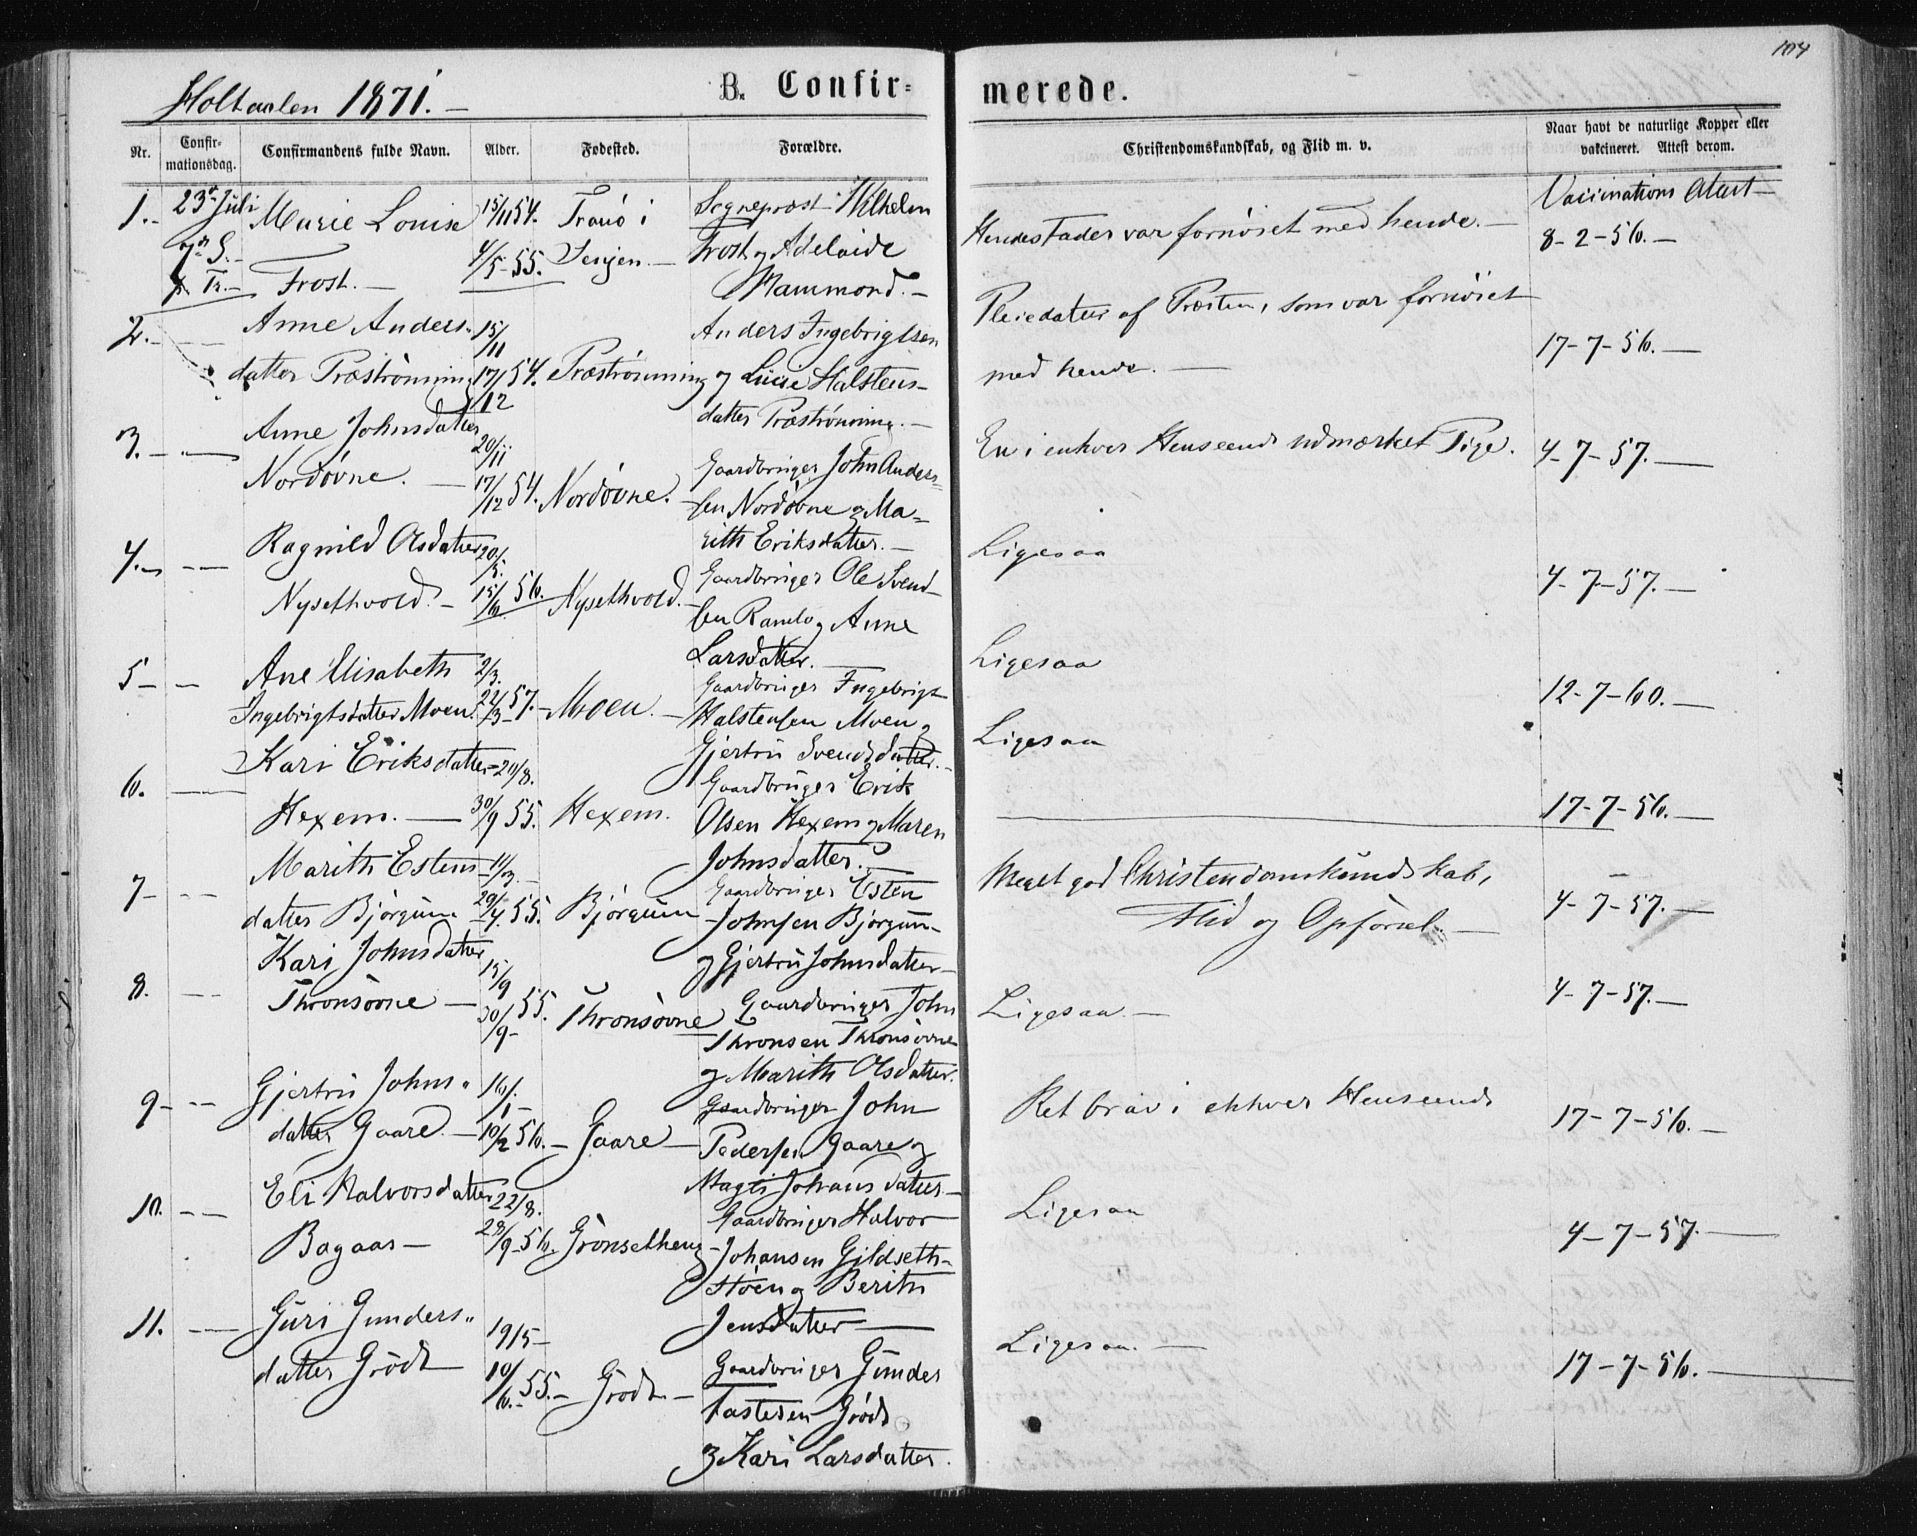 104
Holtaalen 1871.
B. Confir-
merede.
Nr.
Confir-
mationsdag.
Confirmandens fulde Navn.
Alder.
Fødested.
Forældre.
Christendomskundskab, og Flid m. v.
Naar havt de naturlige Kopper eller
vakcineret. Attest derom.
1. 23de Juli Marie Louise 15/11 54. Tranö i Sogneprest Wilhelm
7de S. Frost. 4/5 55. Senjen. Frost og Adelaide
p. Tr. Hammond.
Hendes Fader var fornöiet med hende.
Vaccinations Attest
8-2-56.
2. Anne Anders- 15/11 Anders Ingebrigtsen
datter Præströnning 17/12 54. Præströnning og Lucie Halstens-
datter Præströnning.
Pleiedatter af Præsten, som var fornöiet
med hende.
17-7-56.
3. Anne Johnsdatter 20/11 Gaardbruger John Anders-
Nordövne. 17/12 54. Nordövne. sen Nordövne og Ma-
rith Eriksdatter.
En i enhver Henseende udmærket Pige.
4-7-57.
4. Ragnild Olsdatter 20/5. Gaardbruger Ole Svend-
Nysethvold. 15/6 56. Nysethvold. sen Ramlo og Anne
Larsdatter.
Ligesaa
4-7-57.
5 Ane Elisabeth 2/3. Gaardbruger Ingebrigt
Ingebrigtsdatter Moen. 22/3 57. Moen. Halstensen Moen og
Gjertru Svendsdatter.
Ligesaa
12-7-60.
6. Kari Eriksdatter 20/8. Gaardbruger Erik
Hexem. 30/9 55. Hexem. Olsen Hexem og Maren
Johnsdatter.
Ligesaa
17-7-56.
7 Marith Estens- 11/3. Gaardbruger Esten
datter Bjørgum 29/4. 55. Bjørgum Johnsen Bjørgum
og Gjertru Johnsdatter
Meget god Christendomskundskab,
Flid og Opförsel.
4-7-57.
8. Kari Johnsdatter 15/9 Gaardbruger John
Thronsövne 30/9 55. Thronsövne Thronsen Thronsövne
og Marith Olsdatter.
Ligesaa.
4-7-57.
9 Gjertru Johns- 16/1 Gaardbruger John
datter Gaare. 10/2 56. Gaare Pedersen Gaare og
Magti Johansdatter
Ret brav i enhver Henseende
17-7-56.
10. Eli Halvorsdatter 22/8. Gaardbruger Halvor
Bagaas 28/9 56. Grönsetheng Johansen Gildseth-
stöen og Berith
Jensdatter
Ligesaa
4-7-57.
11. Guri Gunders- 19/5
datter Grödt 10/6. 55. Grödt Gaardbruger Gunder
Grödt
og Kari Larsdatter.
Ligesaa.
17-7-56.